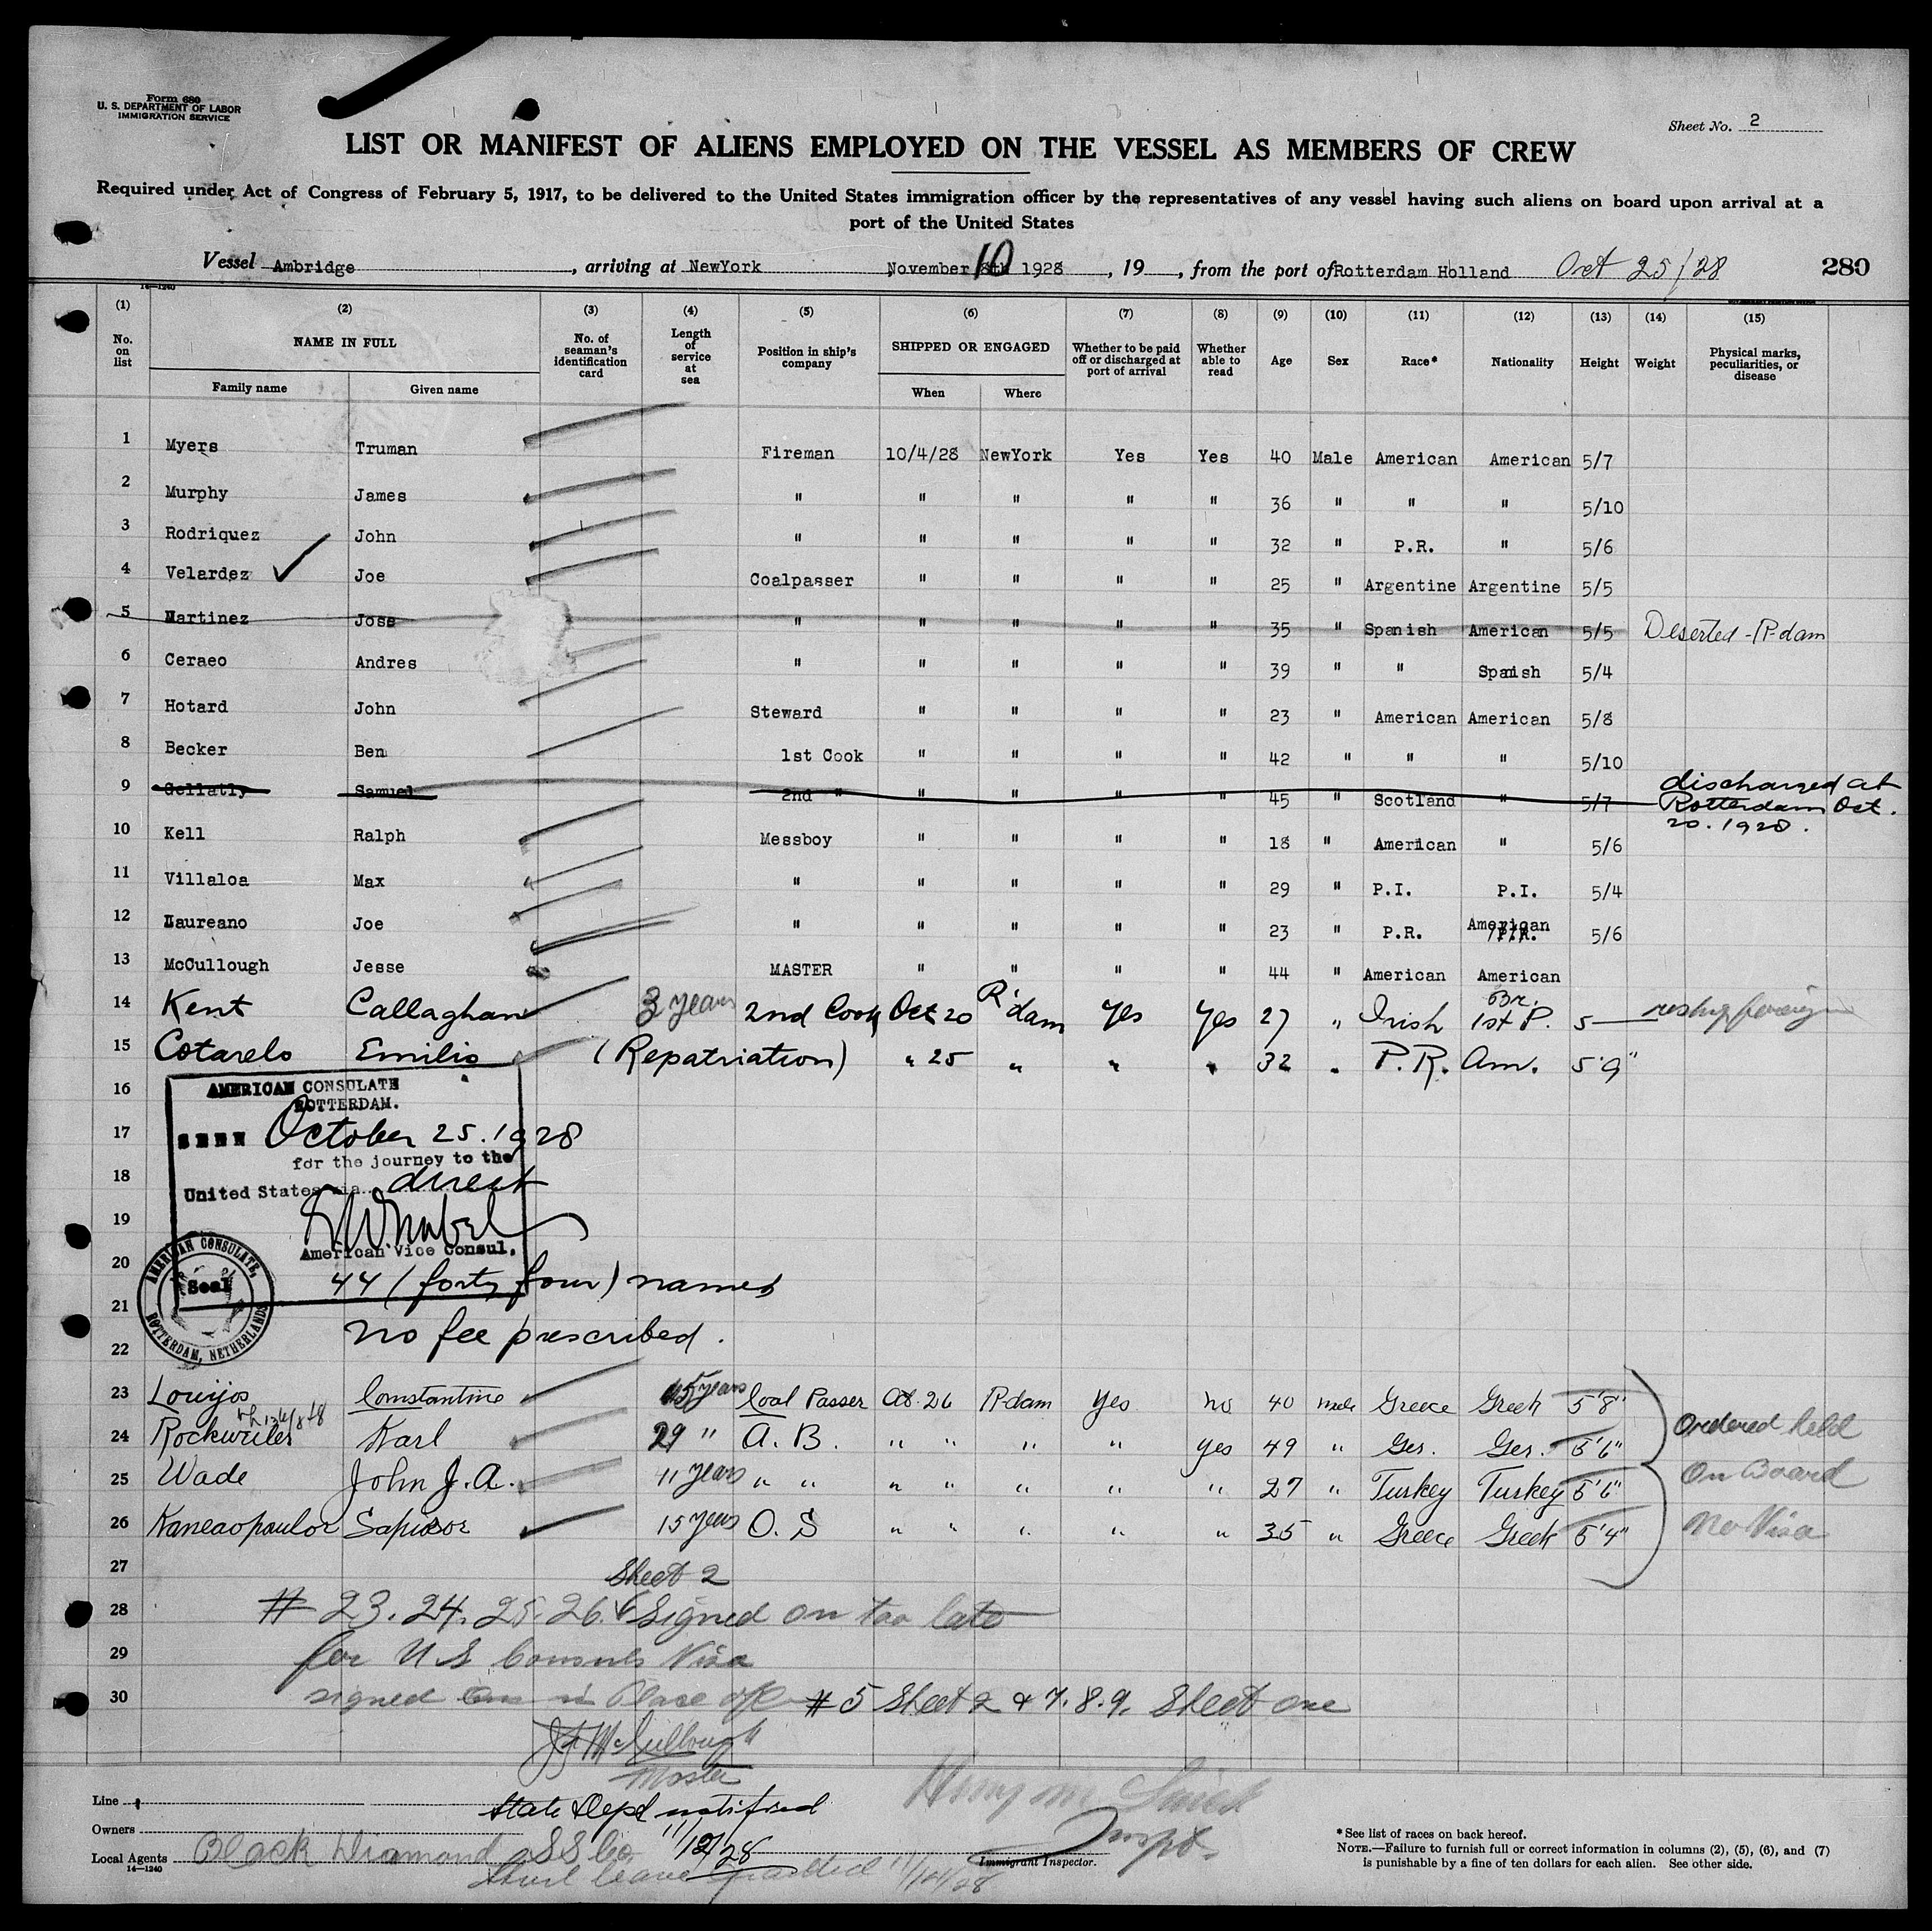 Form 680
U. S. DEPARTMENT OF LABOR
IMMIGRATION SERVICE
Sheet No. 2
LIST OR MANIFEST OF ALIENS EMPLOYED ON THE VESSEL AS MEMBERS OF CREW
Required under Act of Congress of February 5, 1917, to be delivered to the United States immigration officer by the representatives of any vessel having such aliens on board upon arrival at a
port of the United States
Vessel Ambridge, arriving at NewYork November 8th 10 1928, 19, from the port of Rotterdam Holland Oct 25/28 280
14-1240
(1) (2) (3) (4) (5) (6) (7) (8) (9) (10) (11) (12) (13) (14) (15)
No. on list NAME IN FULL Family name Given name No. of seaman's identification card Length of service at sea Position in ship's company SHIPPED OR ENGAGED When Where Whether to be paid off or discharged at port of arrival Whether able to read Age Sex Race* Nationality Height Weight Physical marks, peculiarities, or disease
1 Myers Truman Fireman 10/4/28 NewYork Yes Yes 40 Male American American 5/7
2 Murphy James " " " " " 36 " " " 5/10
3 Rodriquez John " " " " " 32 " P.R. " 5/6
4 Velardez Joe Coalpasser " " " " 25 " Argentine Argentine 5/5
5 Martinez Jose " " " " " 35 " Spanish American 5/5 Deserted - R-dam
6 Ceraeo Andres " " " " " 39 " " Spanish 5/4
7 Hotard John Steward " " " " 23 " American American 5/8
8 Becker Ben 1st Cook " " " " 42 " " " 5/10
9 Gellatly Samuel 2nd " " " " " 45 " Scotland " 5/7 discharged at Rotterdam Oct. 20. 1928.
10 Kell Ralph Messboy " " " " 18 " American " 5/6
11 Villaloa Max " " " " " 29 " P.I. P.I. 5/4
12 Laureano Joe " " " " " 23 " P.R. American P.R. 5/6
13 McCullough Jesse MASTER " " " " 44 " American American
14 Kent Callaghan 3 years 2nd Cook Oct 20 R'dam Yes Yes 27 " Irish Br. 1st P. 5
15 Cotarelo Emilio (Repatriation) " 25 " " " 32 " P.R. Am. 5'9"
16 AMERICAN CONSULATE
ROTTERDAM.
17 SEEN October 25. 1928
for the journey to the
18 United States via direct
19
American Vice Consul.
20 44 (forty four) names
AMERICAN CONSULATE, ROTTERDAM, NETHERLANDS
Seal
21 no fee prescribed.
22
23 Louijos Constantine 15 years Coal Passer Oct. 26 R-dam Yes no 40 male Greece Greek 5'8"
24 Rockweiler Karl 29 " A. B. " " " " Yes 49 " Ger. Ger. 5'6"
25 Wade John J. A. 11 years " " " " " " " 27 " Turkey Turkey 5'6"
26 Kaneaopoulor 15 years O. S " " " " " 35 " Greece Greek 5'4"
Ordered held
On Board
No Visa
27 Sheet 2
28 # 23. 24. 25. 26. Signed on too late
29 for U S Consuls Visa
30 signed on in Place of # 5 Sheet 2 & 7. 8. 9. Sheet one
J F McCullough
Master
Line
State Dept notified
11/12/28
Owners
Local Agents Black Diamond SS Co.
14-1240
Shore leave granted 11/12/28
Inspt.
Immigrant Inspector.
* See list of races on back hereof.
NOTE.—Failure to furnish full or correct information in columns (2), (5), (6), and (7)
is punishable by a fine of ten dollars for each alien. See other side.